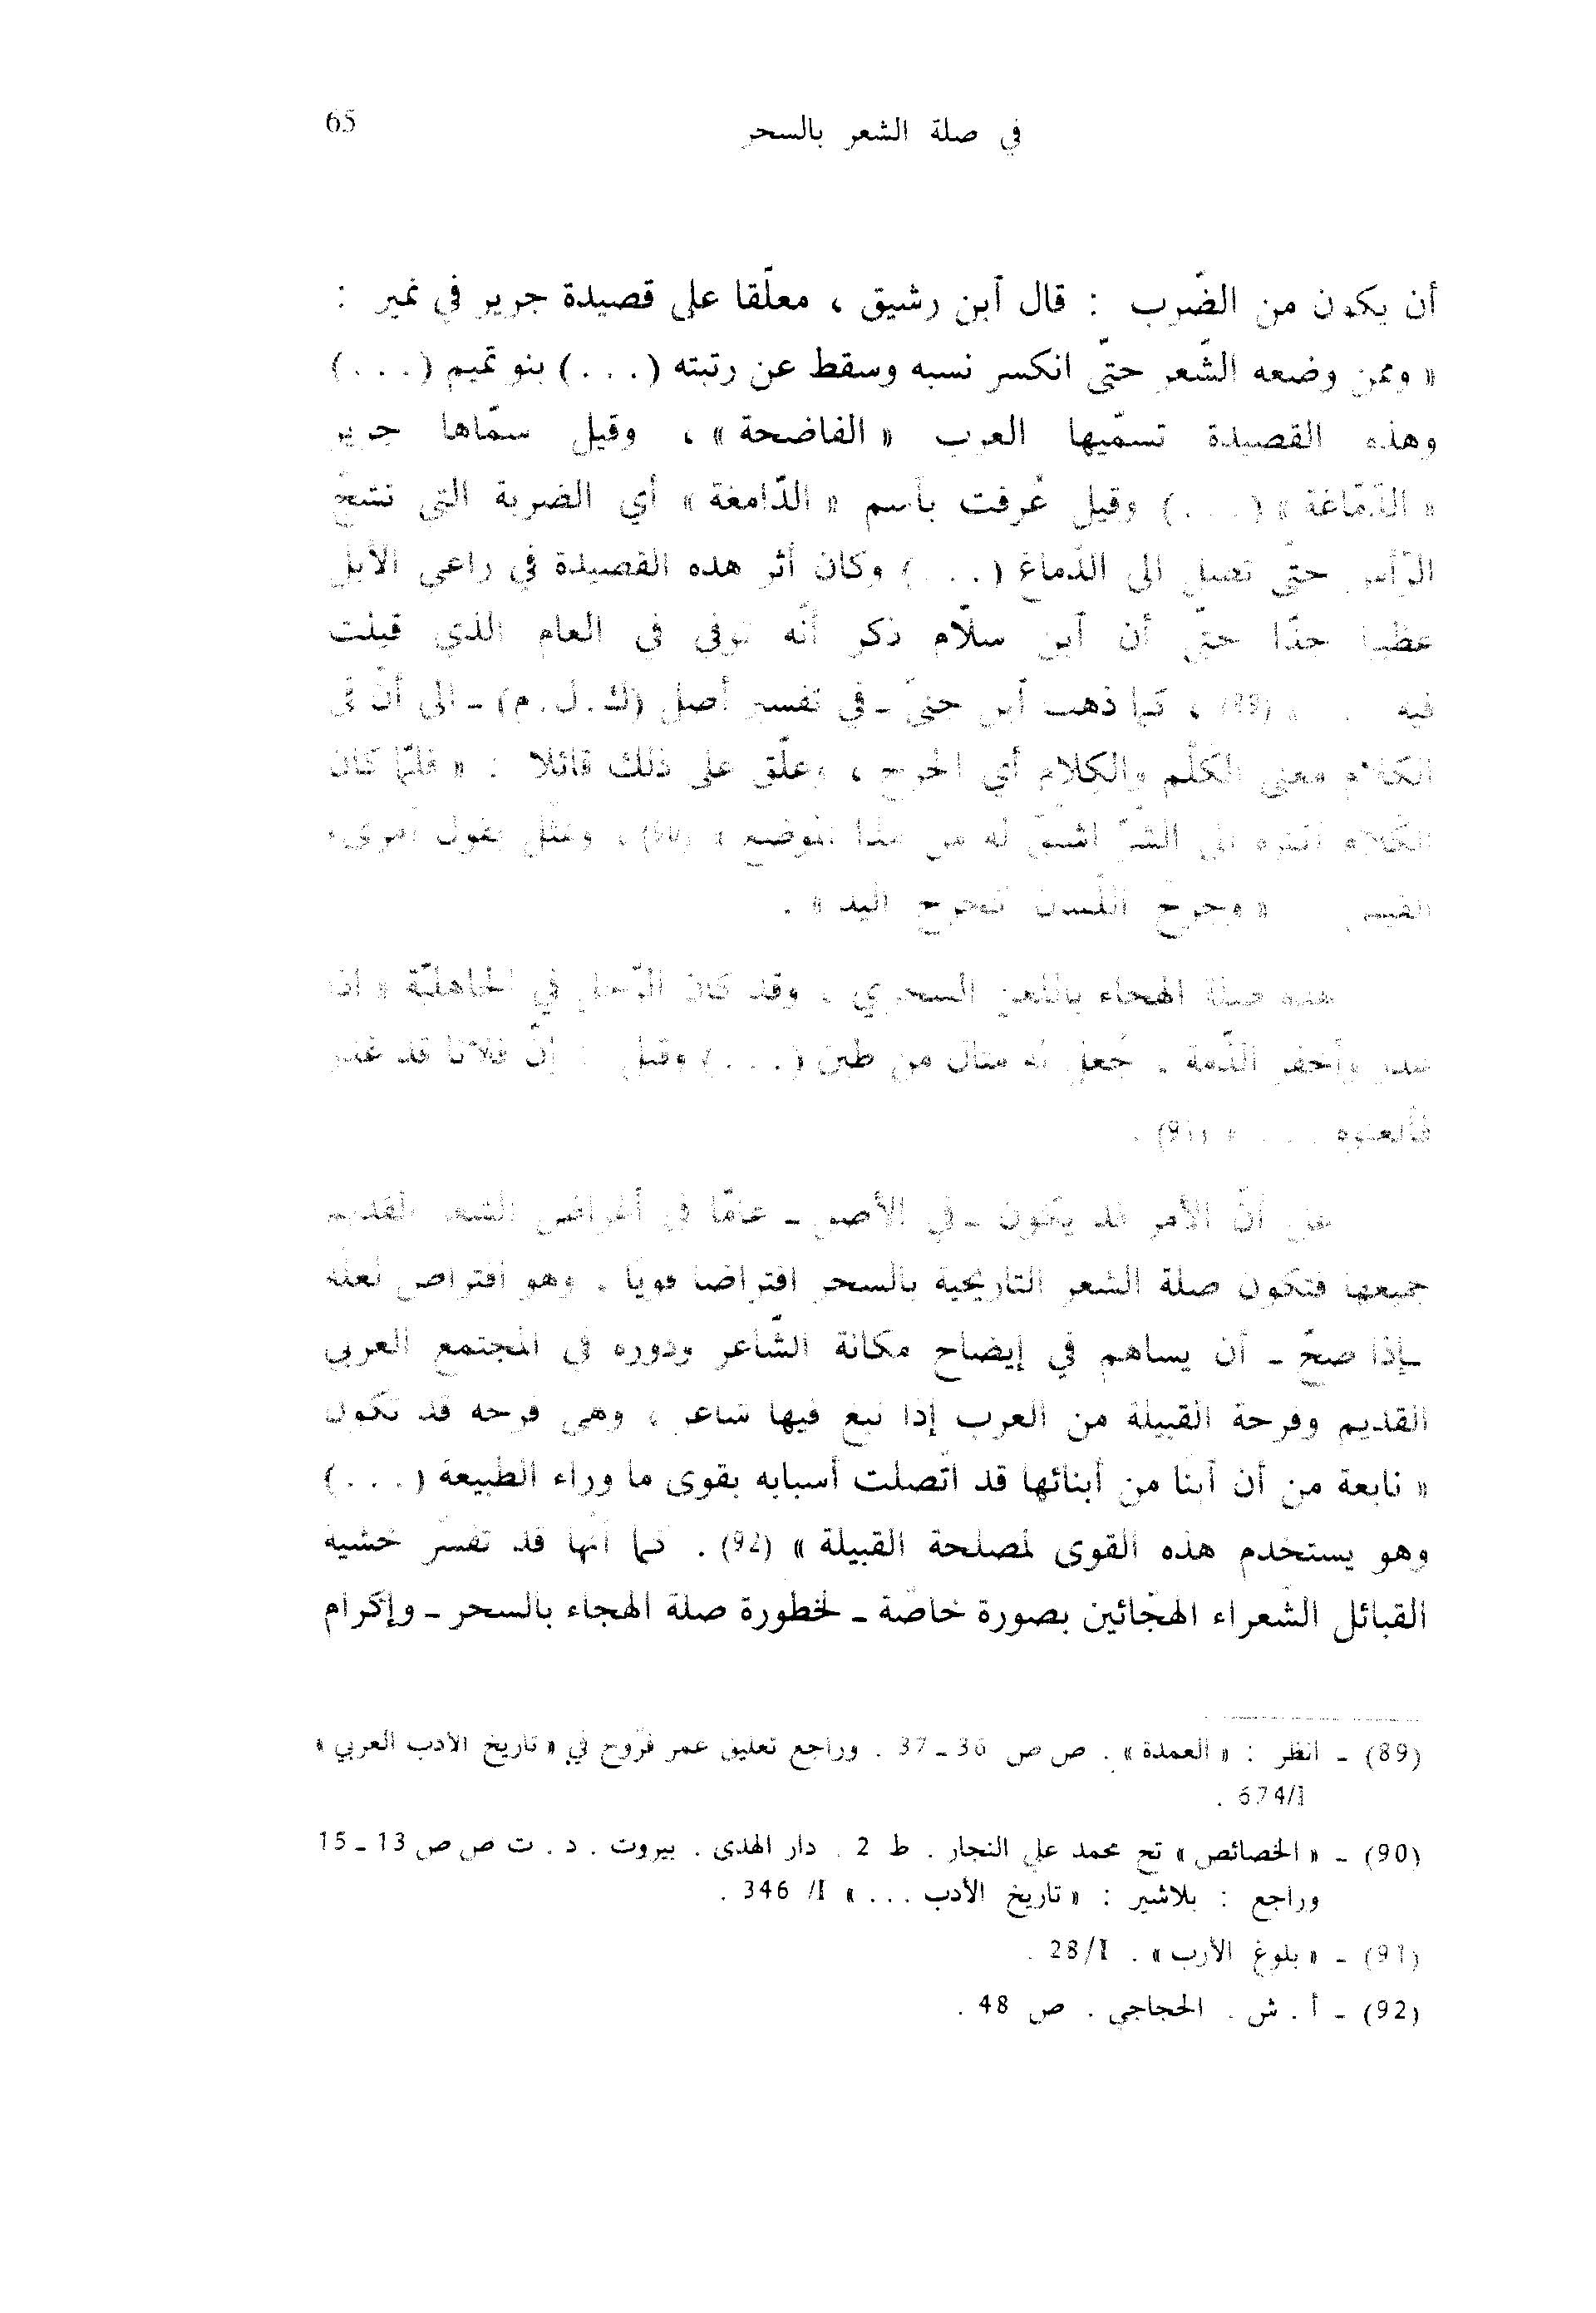 في صلة الشعر بالسحر 65
أن يكون من الضّرب : قال آبن رشيق ، معلّقا على قصيدة جرير في نمير :
« وممن وضعه الشّعر حتّى انكسر نسبه وسقط عن رتبته (. . .) بنو تميم (. . .)
وهذه القصيدة تسمّيها العرب « الفاضحة » ، وقيل سمّاها جرير
« الدّمّاغة » (. . .) وقيل عُرفت بآسم « الدّامغة » أي الضربة التي تشجّ
الرّأس حتّى تصل الى الدّماغ (. . .) وكان أثر هذه القصيدة في راعي الأبل
عظيما جدّا حتّى أن آبن سلّام ذكر أنّه توفي في العام الذي قيلت
فيه . . » (89) ، كما ذهب آبن جنيّ ـ في تفسير أصل (ك . ل . م) ـ الى أنّ في
الكلام معنى الكَلْم والكلام أي الجروح ، وعلّق على ذلك قائلا : « فلمّا كان
الكلام أكثره الى الشّرّ اشتقّ له من هذا الموضع » (90) ، وتمثّل بقول آمرىء
القيس « وجرح اللّسان كجرح اليد » .
هذه صلة الهجاء باللعن السحري . وقد كان الرّجل في الجاهليّة « اذا
غدر وأخفر الذّمة . جُعل له مثال من طين (. . .) وقيل : إنّ فلانا قد غدر
فألعنوه . . . » (91) .
على أنّ الأمر قد يكون ـ في الأصل ـ عامّا في أغراض الشعر القديم
جميعها فتكون صلة الشعر التاريخية بالسحر افتراضا قويا . وهو افتراض لعلّه
ـ إذا صحّ ـ أن يساهم في إيضاح مكانة الشّاعر ودوره في المجتمع العربي
القديم وفرحة القبيلة من العرب إذا نبغ فيها شاعر ، وهي فرحة قد تكون
« نابعة من أن آبنا من أبنائها قد اتّصلت أسبابه بقوى ما وراء الطبيعة (. . .)
وهو يستخدم هذه القوى لمصلحة القبيلة » (92) . كما أنّها قد تفسّر خشية
القبائل الشّعراء الهجّائين بصورة خاصّة ـ لخطورة صلة الهجاء بالسحر ـ وإكرام
(89) ـ انظر : « العمدة » . ص ص 36 ـ 37 . وراجع تعليق عمر فرّوخ في « تاريخ الأدب العربي »
674/I .
(90) ـ « الخصائص » تح محمد علي النجار . ط 2 . دار الهدى . بيروت . د . ت ص ص 13 ـ 15
وراجع : بلاشير : « تاريخ الأدب . . . » I/ 346 .
(91) ـ « بلوغ الأرب » . 28/I .
(92) ـ أ . ش . الحجاجي . ص 48 .